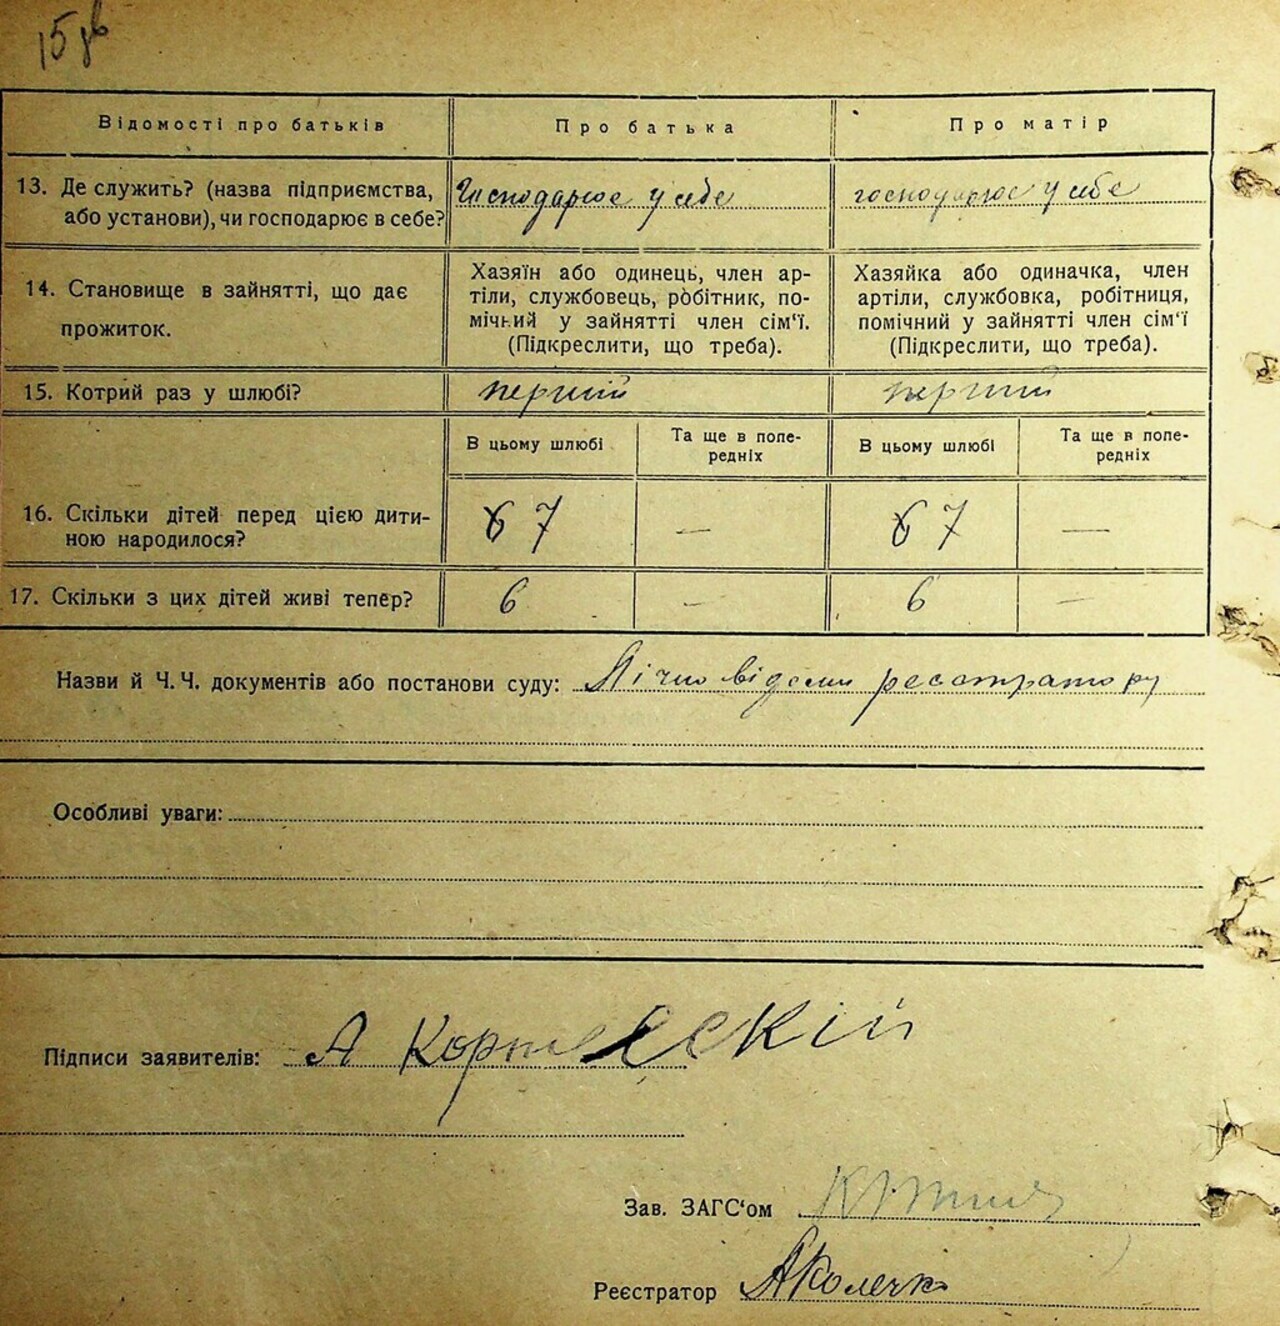 15 зв
Відомості про батьків
Про батька
Про матір
13. Де служить? (назва підприємства,
або установи), чи господарює в себе?
Господарює у себе
господарює у себе
14. Становище в зайнятті, що дає
прожиток.
Хазяїн або одинець, член ар-
тілі, службовець, робітник, по-
мічний у зайнятті член сім'ї.
(Підкреслити, що треба).
Хазяйка або одиначка, член
артіли, службовка, робітниця,
помічний у зайнятті член сім'ї
(Підкреслити, що треба).
15. Котрий раз у шлюбі?
перший
перший
В цьому шлюбі
Та ще в попе-
редніх
В цьому шлюбі
Та ще в попе-
редніх
16. Скільки дітей перед цією дити-
ною народилося?
7
—
7
—
17. Скільки з цих дітей живі тепер?
6
—
6
—
Назви й Ч. Ч. документів або постанови суду: Лічно відомий
Особливі уваги:
Підписи заявителів: А
Зав. ЗАГС'ом
Реєстратор